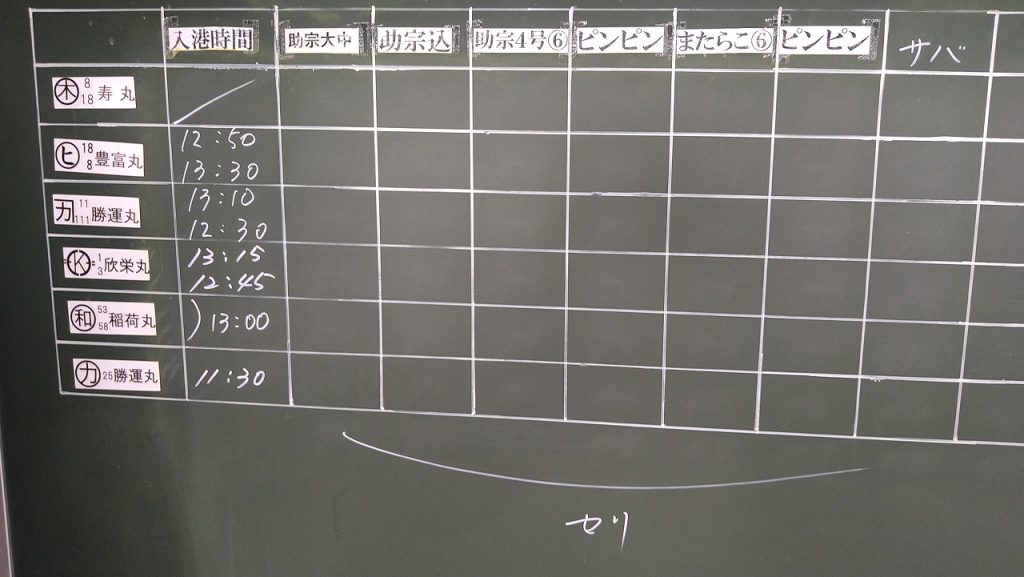 入港時間 助宗大中 助宗込 助宗4号⑥ ピンピン またらこ⑥ ピンピン サバ
木 8 18 寿丸
ヒ 18 8 豊富丸 12:50 13:30
カ 11 111 勝運丸 13:10 12:30
K 1 3 欣栄丸 13:15 12:45
和 53 58 稲荷丸 ) 13:00
カ 25 勝運丸 11:30
セリ